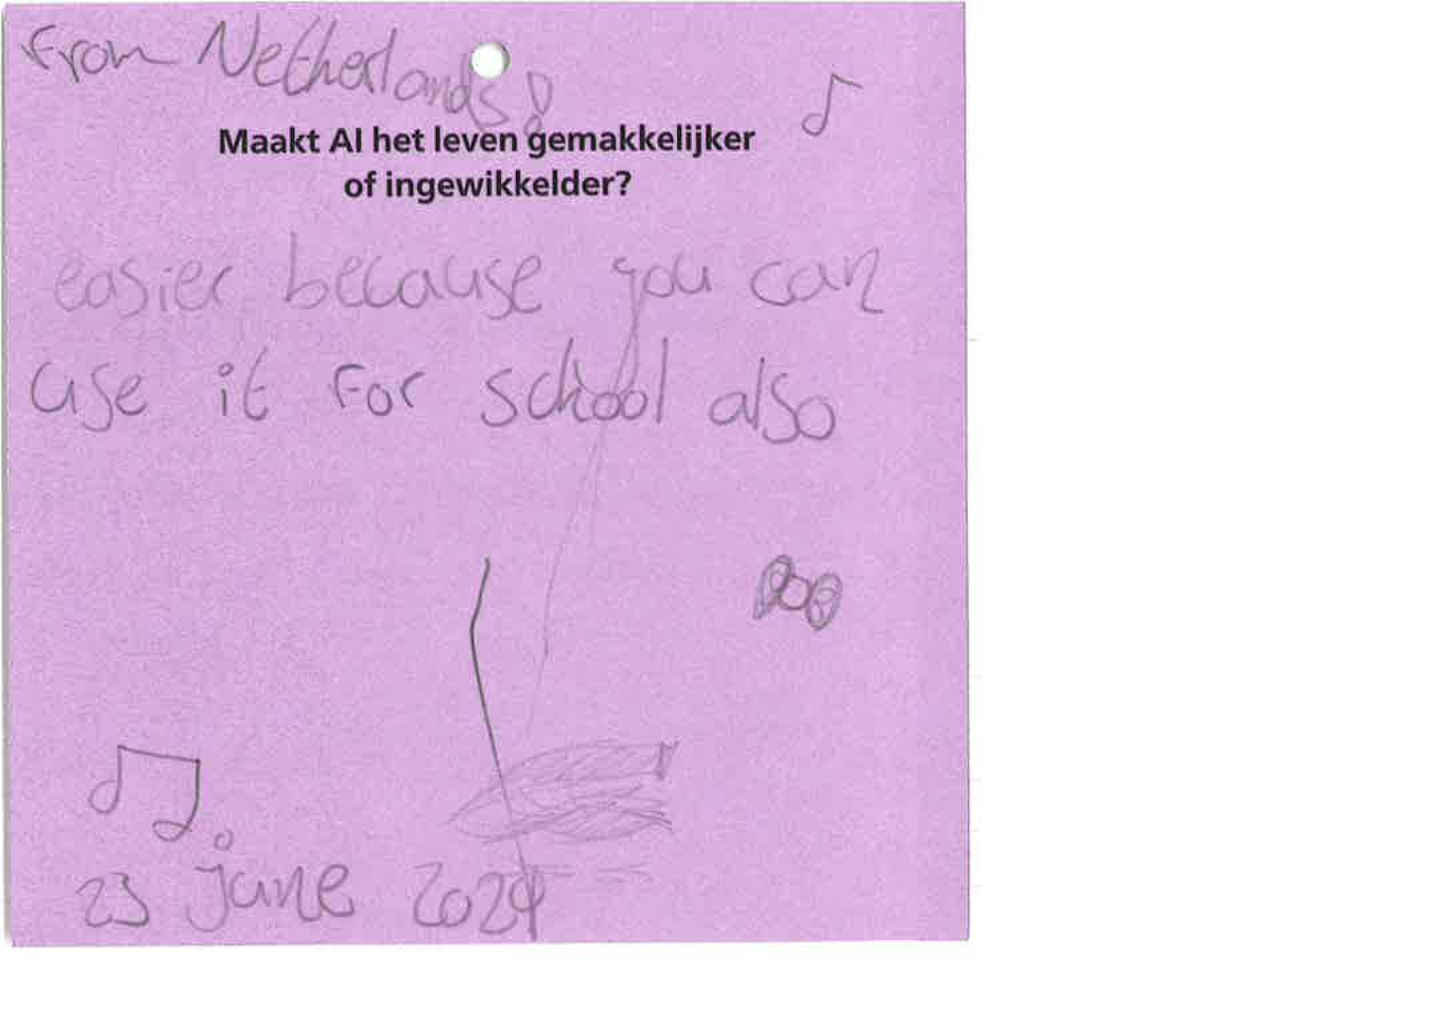 From Netherlands!
Maakt AI het leven gemakkelijker
of ingewikkelder?
easier because you can
use it for school also
23 june 2024